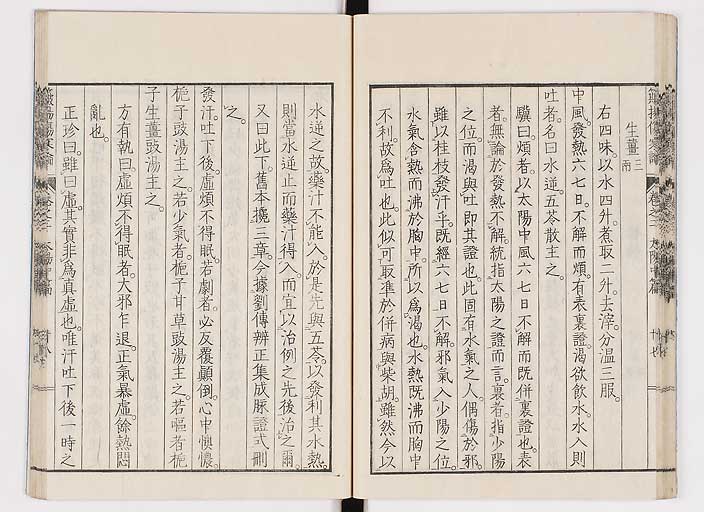 生薑三兩
右四味。以水四升。煮取二升。去滓。分溫三服。
中風。發熱六七日。不解而煩。有表裏證。渴欲飲水。水入則
吐者。名曰水逆。五苓散主之。
驥曰。煩者。以太陽中風六七日不解而既併裏證也。表
者。無論於發熱不解。統指太陽之證而言。裏者。指少陽
之位。而渴與吐即其證也。此固有水氣之人。偶傷於邪。
雖以桂枝發汗乎。既經六七日不解。邪氣入少陽之位。
水氣含熱而沸於胸中。所以為渴也。水熱既沸而胸中
不利。故為吐也。此似可取準於併病與柴胡。雖然今以
水逆之故。藥汁不能入。於是先與五苓。以發利其水熱。
則當水逆止而藥汁得入。而宜以治例之先後治之爾。
又曰。此下。舊本攙三章。今據劉傳辨正集成脉證式刪
之。
發汗。吐下後。虛煩不得眠。若劇者。必反覆顛倒。心中懊憹。
梔子豉湯主之。若少氣者。梔子甘草豉湯主之。若嘔者。梔
子生薑豉湯主之。
方有執曰。虛煩不得眠者。大邪乍退。正氣暴虛。餘熱悶
亂也。
正珍曰。雖曰虛。其實非為真虛也。唯汗吐下後一時之